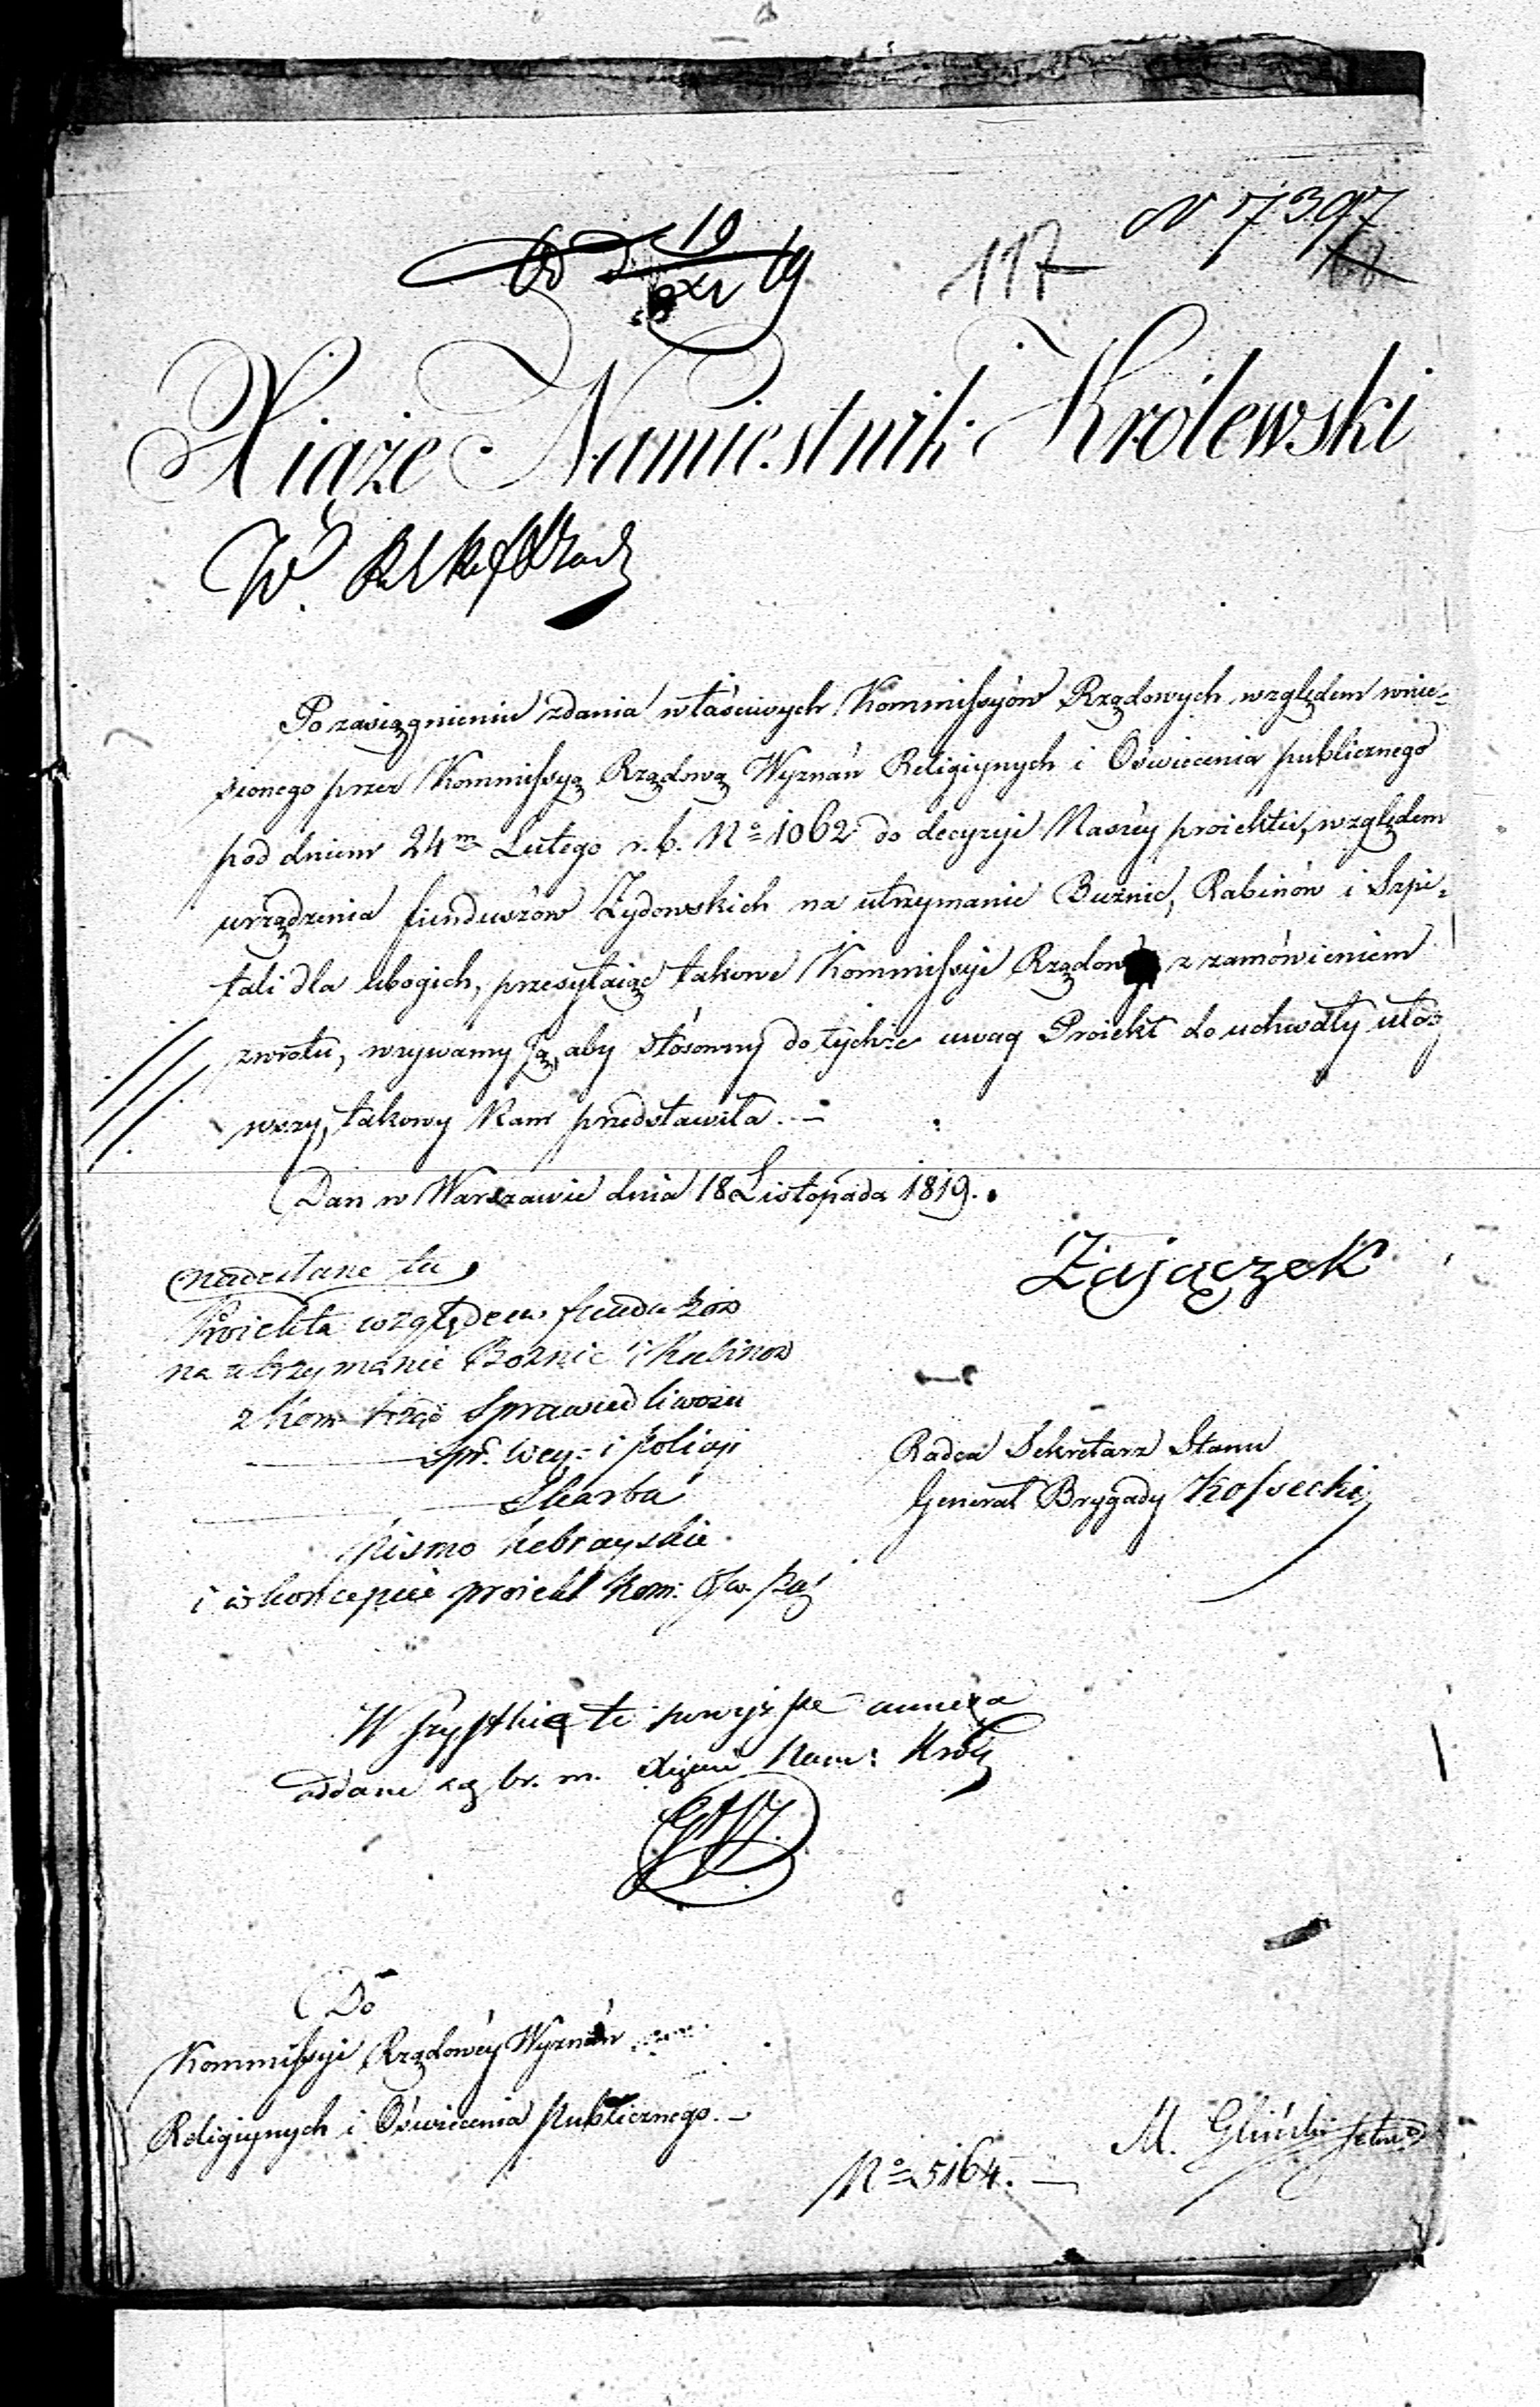 N 7397
Od d. 19/XI 19
117
Xiąże Namiestnik Królewski
W.
Po zasiągnieniu zdania właściwych Kommissyów Rządowych względem wnie-
sionego przez Kommissyą Rządową Wyznań Religiynych i Oświecenia publicznego
pod dniem 24m Lutego r. b. No 1062 do decyzyi Naszéy proiektu, względem
urządzenia funduszów Żydowskich na utrzymanie Bużnic, Rabinów i Szpi-
tali dla ubogich, przesyłaiąc takowe Kommissyi Rządowéy z zamówieniem
zwrotu, wzywamy Ją, aby stósowny do tychże uwag Proiekt do uchwały ułoż
wszy, takowy Nam przedstawiła. —
Dan w Warszawie dnia 18 Listopada 1819.
Zajączek
nadesłane tu
Proiekta względem funduszów
na utrzymanie Bożnic i Rabinow
z Kom Rząd Sprawiedliwości
Spr. Wey: i Policyi
Skarbu
Radca Sekretarz Stanu
Generał Brygady Kossecki
pismo hebrayskie
i w koncepcie proiekt Kom: Ośw. Pu
Wszystkie te powyższe annexa
oddane są br. m. Xięcia Nam: Król
Do
Kommissyi Rządowéy Wyznań
Religiynych i Oświecenia Publicznego. —
No 5164. —
M. Gliński